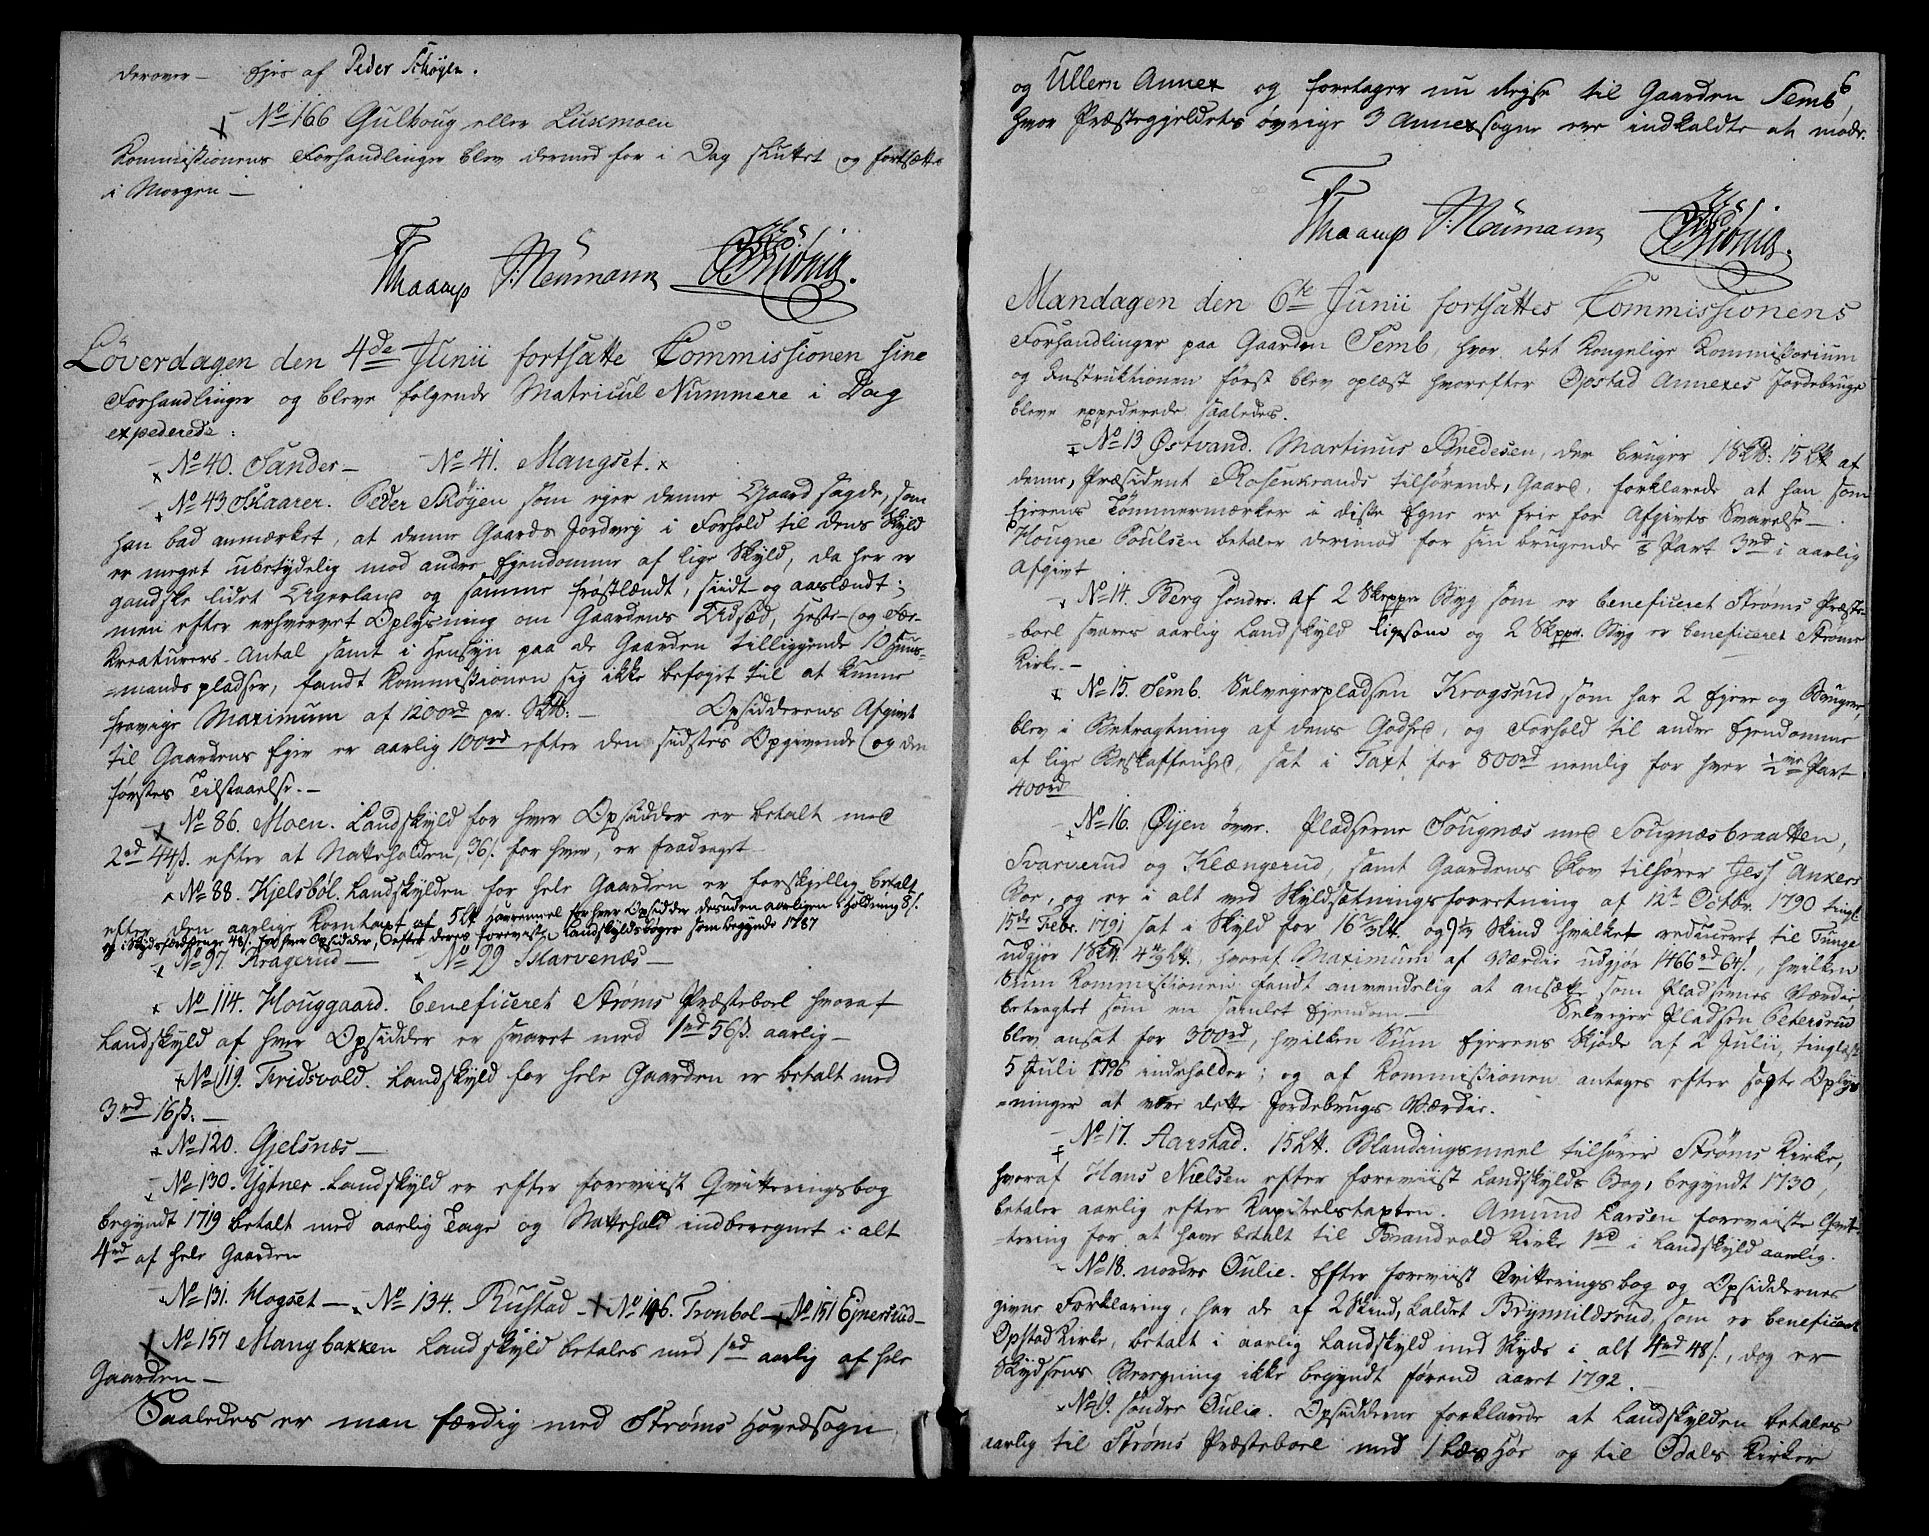 derover — Ejes af Peder Schøyen.
No 166 Gulhoug eller Lusmoen
Kommißionens Forhandlinger blev dermed for i Dag sluttet og fortsættes
i Morgen —
Thaarup P: Neumann
Löverdagen den 4de Junii fortsatte Commissionen sine
Forhandlinger og bleve følgende Matricul Nummere i Dag
expederede:
No 40. Sander — No 41. Mangset.
No 43 Skaarer. Peder Skøyen som ejer denne Gaard sagde, som
han bad anmærket, at denne Gaards Jordvej i Forhold til dens Skyld
er meget ubetydelig mod andre Ejendomme af lige Skyld, da her er
gandske lidet Agerland og samme frostlændt, siidt og aaslændt;
men efter erhvervet Oplysning om Gaardens Udsæd, Heste- og Fæ-
Kreaturers Antal samt i Hensyn paa de Gaarden tilliggende 10 Huus-
=mands pladser, fandt Kommißionen sig ikke beføyet til at kunne
fravige Maximum af 1200rd pr. Skb: — Opsidderens Afgivt
til Gaardens Ejer er aarlig 100rd efter den sidstes Opgivende og den
førstes Tilstaaelse. —
No 86. Moen. Landskyld for hver Opsidder er betalt med
2rd 44ß. efter at Natteholden, 36ß. for hver, er fradraget
No 88. Kjelsböl. Landskylden for hele Gaarden er forskjellig betalt
efter den aarlige Korntaxt af 5 Lb Havremeel for hver Opsidder desuden aarligen i Holdning 8ß.
og i Skydsferdspenge 48ß. for hver Opsidder, efter deres foreviiste Landskyldsbøger som begynde 1787
No 97. Kragerud — No 99 Skarvenæs —
No 114. Houggaard. beneficeret Strøms Præsteboel hvoraf
Landskyld af hver Opsidder er svaret med 1rd 56ß. aarlig —
No 119. Fridsvold. Landskyld for hele Gaarden er betalt med
3rd 16ß. —
No 120. Gjelsnæs —
No 130. Ygtner. Landskyld er efter foreviist Qvitteringsbog
begyndt 1719 betalt med aarlig Tage og Nattehold indberegnet i alt
4rd af hele Gaarden
No 131. Mogset — No 134. Rustad — No 146. Tronbol — No 151 Ejnersrud —
No 157 Mangbakken Landskyld betales med 1rd aarlig af hele
Gaarden —
Saaledes er man færdig med Strøms Hovedsogn
6
og Ullern Annex og foretager nu Rejse til Gaarden Semb,
hvor Præstegjeldets øvrige 3 Annexsogne ere indkaldte at møde.
Thaarup P: Neumann
Mandagen den 6te Junii fortsattes Commissionens
Forhandlinger paa Gaarden Semb, hvor det Kongelige Kommißorium
og Instruktionen først blev oplæst hvorefter Opstad Annexes Jordebruge
bleve expederede saaledes.
No 13 Østvand. Martinus Bredesen, der bruger 1 Skb: 15 Lb af
denne, Præsident Rosenkrands tilhørende, Gaard, forklarede at han som
Ejerens Tömmermærker i disse Egne er frie for Afgivts Svarelse —
Hougne Poulsen betaler derimod for sin brugende Part 3rd i aarlig
Afgivt
No 14. Berg søndre. af 2 Skepper Byg som er beneficeret Strøms Præste-
=boel svares aarlig Landskyld ligesom og 2 Skppr. Byg er beneficeret Strøms
Kirke. —
No 15. Semb. Selvejerpladsen Krogsrud som har 2 Ejere og Brugere,
blev i Betragtning af dens Godhed, og Forhold til andre Ejendomme
af lige Beskaffenhed, sat i Taxt for 800rd nemlig for hver 1/2 Part
400rd
No 16. Øijen övre. Pladserne Sougnæs med Sougnæsbraatten,
Svarverud og Klængerud, samt Gaardens Skov tilhører Jess Ankers
Boe, og er i alt ved Skyldsætningsforretning af 12te Octbr. 1790 tingl.
15de Febr. 1791 sat i Skyld for 16 2/3 Lb. og Skind hvilket reduceret til Tunge
udgjør 1 Skb. Lb., hvoraf Maximum af Værdie udgjør 1466rd 64ß., hvilken
Sum Kommißionen fandt anvendelig at ansætte som Pladsernes Værdie
betragtet som en samlet Ejendom — Selvejer Pladsen Petersrud
blev ansat for 300rd, hvilken Sum Ejerens Skjøde af 2 Julii, tinglæst
5 Juli 1796 indeholder; og af Kommißionen antages efter søgte Oplys
=ninger at være dette Jordebrugs Værdie.
No 17. Aarstad. 15 Lb. Blandingsmeel tilhører Strøms Kirke,
hvoraf Hans Nielsen efter foreviist Landskylds Bog, begyndt 1730,
betaler aarlig efter Kapitelstaxten. Amund Larsen foreviiste Qvit-
=tering for at have betalt til Brandvold Kirke 1rd i Landskyld aarlig.
No 18. nordre Oulie. Efter foreviist Qvitteringsbog og Opsiddernes
givne Forklaring, har de af 2 Skind, kaldet Brynnildsrud, som er beneficeret
Opstad Kirke, betalt i aarlig Landskyld med Skyds i alt 4rd 48ß., dog er
Skydsens Beregning ikke begyndt førend aaret 1792.
No 19. søndre Oulie. Opsidderne forklarede at Landskylden betales
aarlig til Strøms Præsteboel med 1 Læs Høe og til Odals Kirker